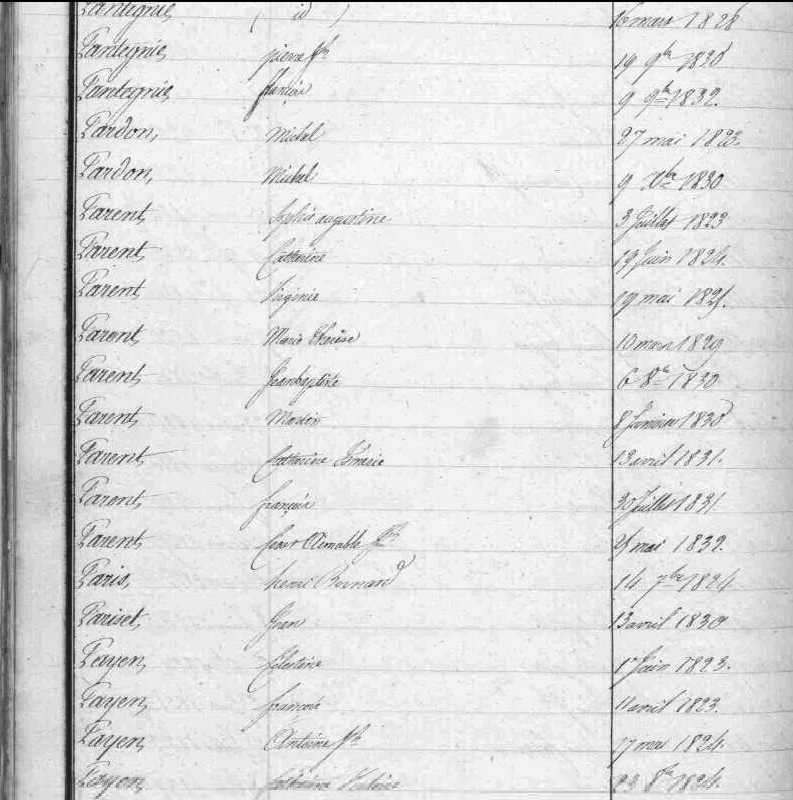 Pantegnie ( id ) 16 mars 1828
Pantegnie pierre jh 19 9bre 1830
Pantegnie françois 9 9bre 1832.
Pardon, Michel 27 mai 1823.
Pardon, Michel 9 Xbre 1830
Parent augustine 3 Juillet 1823
Parent Catherine 19 Juin 1824.
Parent Virginie 19 mai 182
Parent Marie Thérèse 10 mars 1829
Parent Jeanbaptiste 6 8bre 1830
Parent 8 Janvier 1830
Parent Catherine 13 avril 1831.
Parent françois 30 Juillet 1831.
Parent Aimable jh mai 1832.
Paris, henri Bernard 14 7bre 1824
Pariset, Jean 13 avril 1830
Payen, Célestine 17 Juin 1823.
Payen, françois 11 avril 1823.
Payen, Antoine jh 17 mai 1824.
Payen, Catherine 23 8bre 1824.